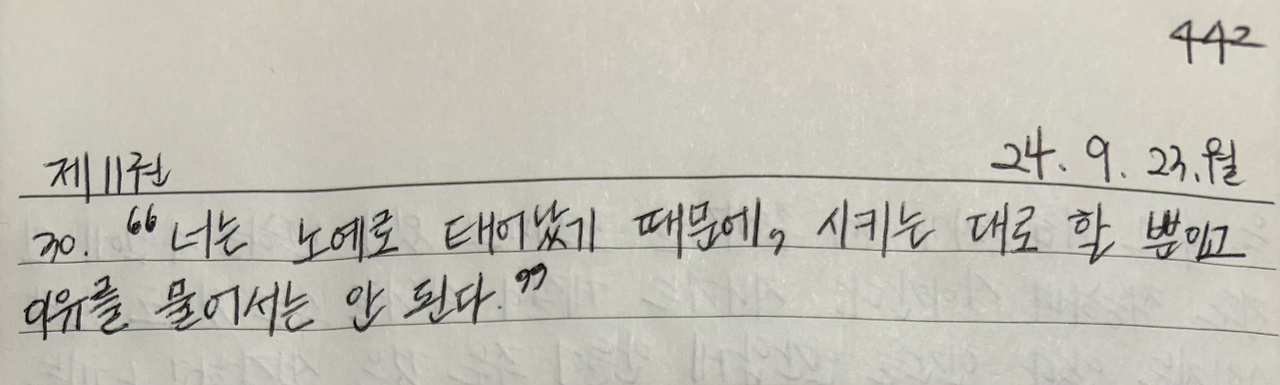 442
제11권 24. 9. 23. 월
30. “너는 노예로 태어났기 때문에, 시키는 대로 할 뿐이고
이유를 물어서는 안 된다.”